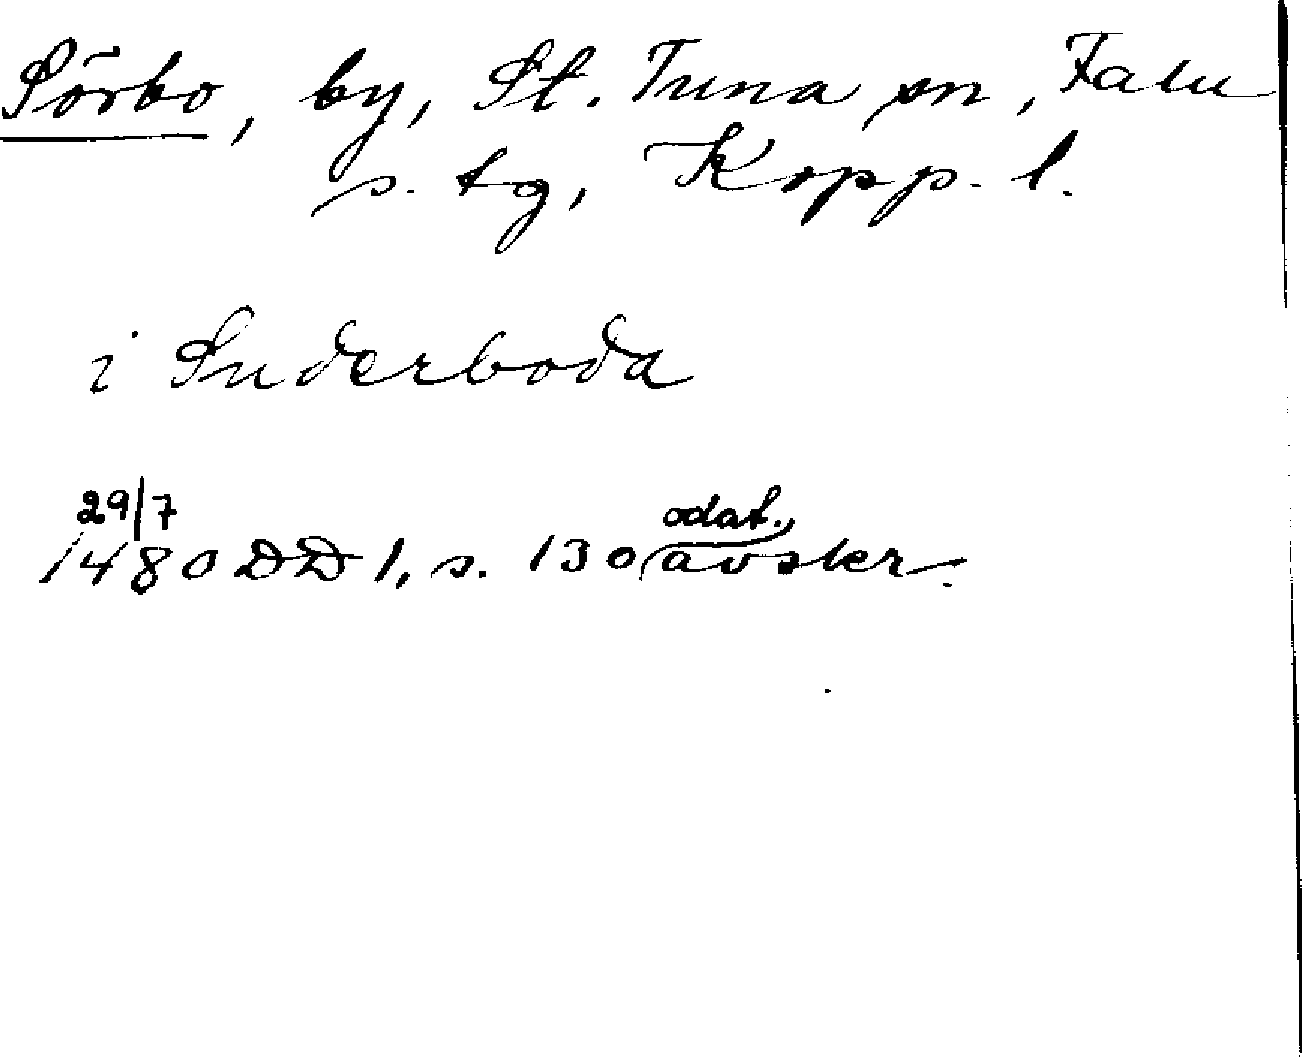 Sörbo, by, St. Tuna sn, Falu
s. tg, Kopp. l.
i Suderboda
29/7
1480 DD 1, s. 130 (odat. avskr.